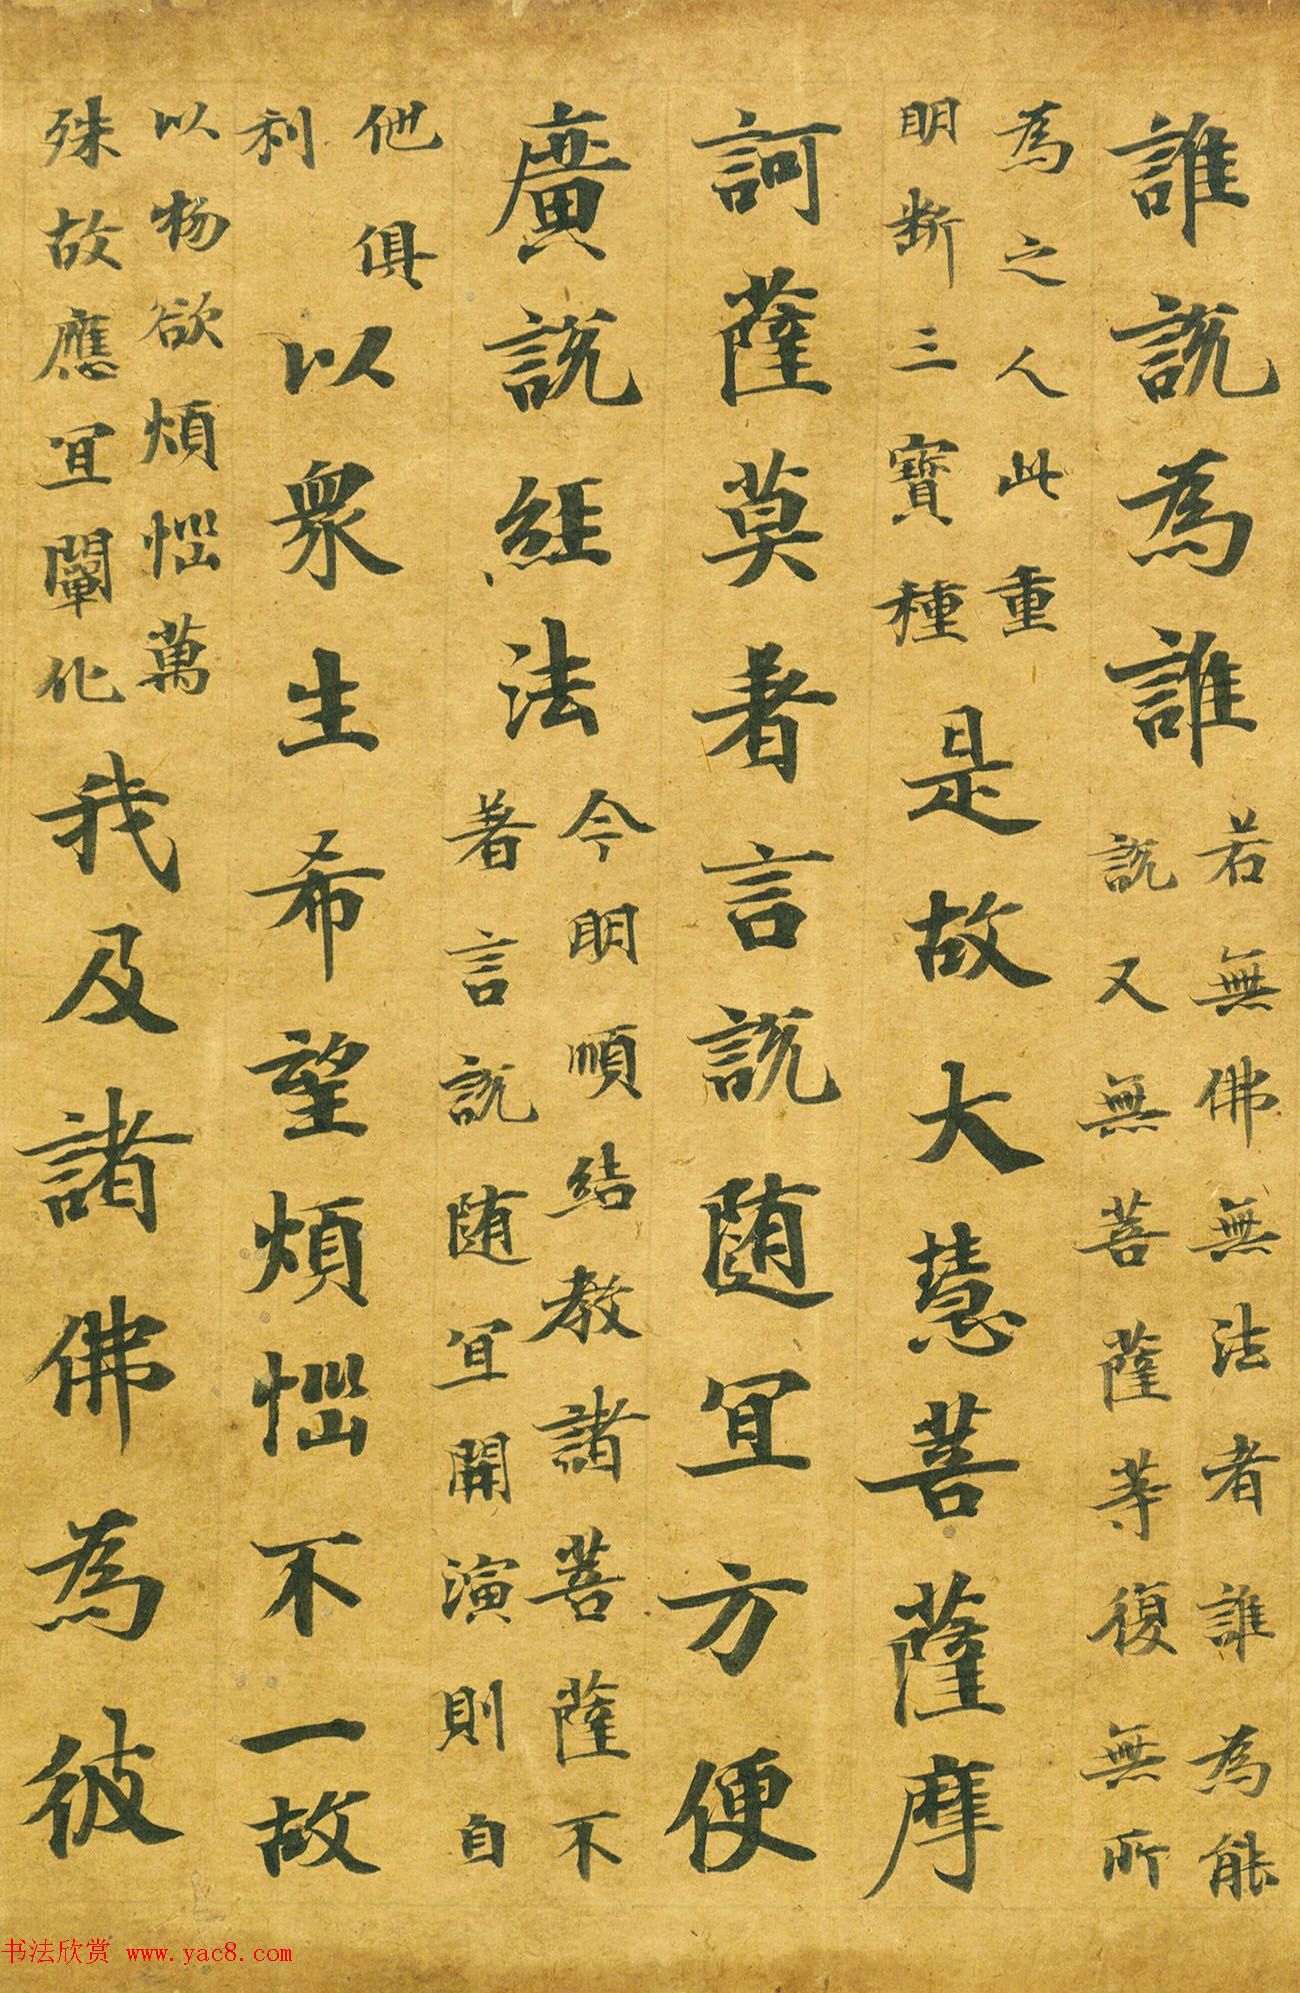 誰說為誰
若無佛無法者誰為能
說又無菩薩等復無所
為之人此重
明断三寶種
是故大慧菩薩摩
訶薩莫著言說随宜方便
廣說經法
今明順結教諸菩薩不
著言說随宜開演則自
他俱
利
以衆生希望煩惱不一故
以物欲煩惱萬
殊故應宜闡化
我及諸佛為彼
书法欣赏 www.yac8.com